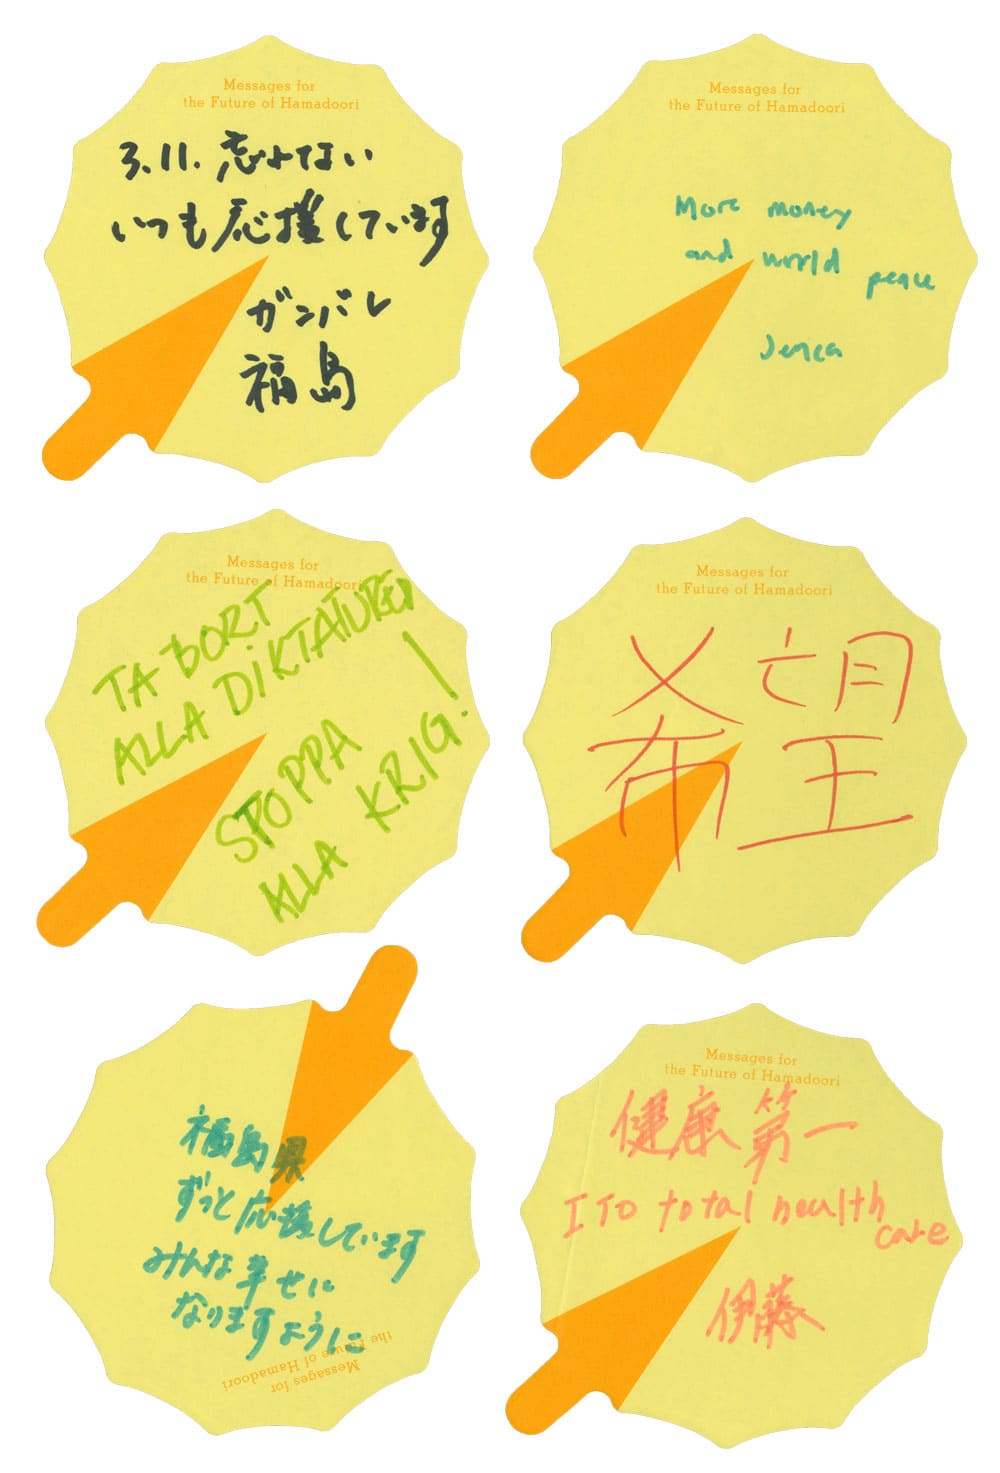 Messages for
the Future of Hamadoori
3.11. 忘れない
いつも応援しています
ガンバレ
福島
Messages for
the Future of Hamadoori
More money
and world peace
Messages for
the Future of Hamadoori
TA BORT
ALLA DIKTATURER
!
STOPPA
ALLA KRIG!
Messages for
the Future of Hamadoori
希望
福島県
ずっと応援しています
みんな幸せに
なりますように
Messages for
the Future of Hamadoori
Messages for
the Future of Hamadoori
健康第一
ITO total health
care
伊藤